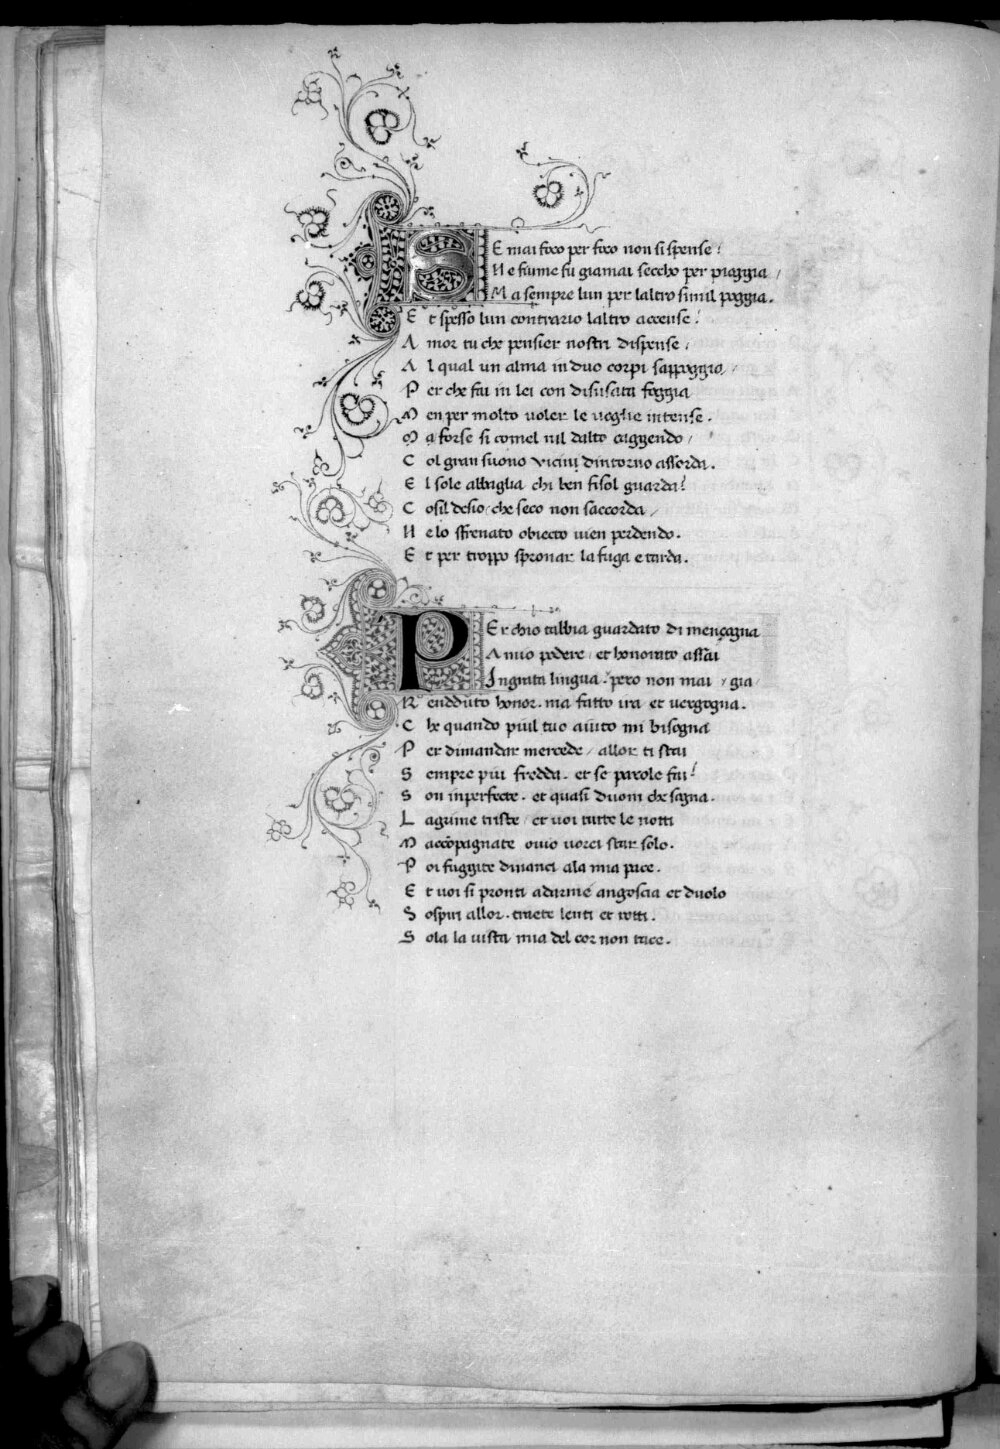 SE mai foco per foco non si spense:
Ne fiume fu giamai seccho per pioggia /
Ma sempre lun per laltro simil poggia.
Et spesso lun contrario laltro accense:
Amor tu che pensier nostri dispense /
Al qual un alma in duo corpi sappoggia /
Per che fai in lei con disusata foggia
Men per molto voler le voglie intense.
Ma forse si comel nil dalto caggendo /
Col gran suono vicini dintorno assorda.
El sole abbaglia chi ben fisol guarda:
Cosil desio / che seco non saccorda /
Ne lo sfrenato obiecto vien perdendo.
Et per troppo spronar la fuga e tarda.
PEr chio tabbia guardato di mençogna
A mio podere / et honorato assai
Ingrata lingua: pero non mai / gia /
Rendduto honor. ma fatto ira et vergogna.
Che quando piul tuo aiuto mi bisogna
Per dimandar mercede / allor ti stai
Sempre piu fredda. et se parole fai:
Son inperfecte. et quasi duom che sogna.
Lagrime triste / et voi tutte le notti
Maccōpagnate ovio vorei star solo.
Poi fuggite dinanci ala mia pace.
Et voi si pronti adarme angoscia et duolo
Sospiri allor. traete lenti et rotti.
Sola la vista mia del cor non tace.